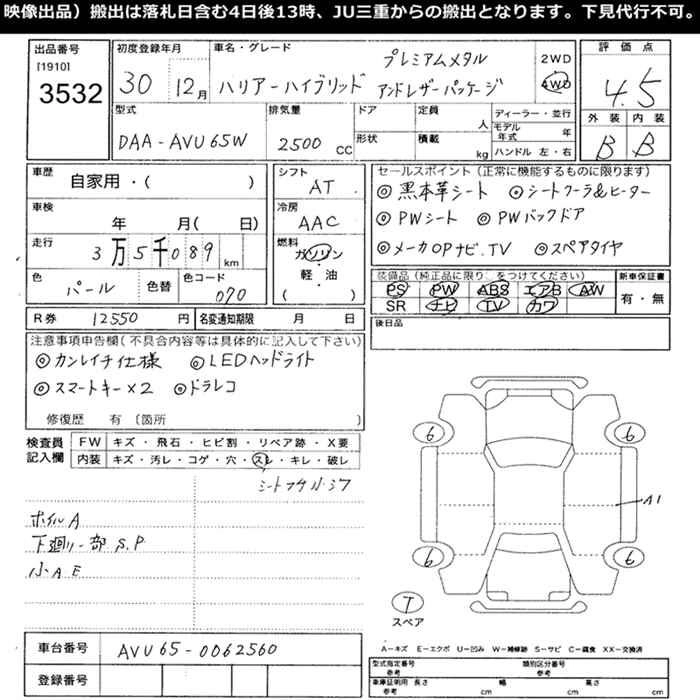 映像出品）搬出は落札日含む4日後13時、JU三重からの搬出となります。下見代行不可。
出品番号
[1910]
3532
初度登録年月
30 12月
車名・グレード
ハリアーハイブリッド
プレミアムメタル
アンドレザーパッケージ
2WD
4WD
評価点
4.5
外装 内装
B B
型式
DAA-AVU65W
排気量
2500 CC
ドア
形状
定員 人
積載 kg
ディーラー・並行
モデル年式 年
ハンドル 左・右
車歴
自家用・( )
車検
年 月( 日)
走行
3万5千089km
色
パール
色替
色コード
070
シフト
AT
冷房
AAC
燃料
ガソリン
軽・油
( )
セールスポイント（正常に機能するものに限ります）
◎黒本革シート ◎シートクーラ&ヒーター
◎PWシート ◎PWバックドア
◎メーカOPナビ.TV ◎スペアタイヤ
装備品（純正品に限り○をつけてください）
PS PW ABS エアB AW
SR ナビ TV カワ
新車保証書
有・無
後日品
R券 12550円
名変通知期限 月 日
注意事項申告欄(不具合内容等は具体的に記入して下さい)
◎カンレイチ仕様 ◎LEDヘッドライト
◎スマートキー×2 ◎ドラレコ
修復歴 有 〔箇所
検査員
記入欄
FW キズ・飛石・ヒビ割・リペア跡・X要
内装 キズ・汚レ・コゲ・穴・スレ・キレ・破レ
ホイルA
下廻り一部 S.P
小A E
6 6
A1
6 6
T
スペア
車台番号 AVU65-0062560
登録番号
A－キズ E－エクボ U－凹み W－補修跡 S－サビ C－腐食 XX－交換済
型式指定番号
参考
類別区分番号
参考
車庫証明用 長さ 幅 高さ
参考 cm cm cm